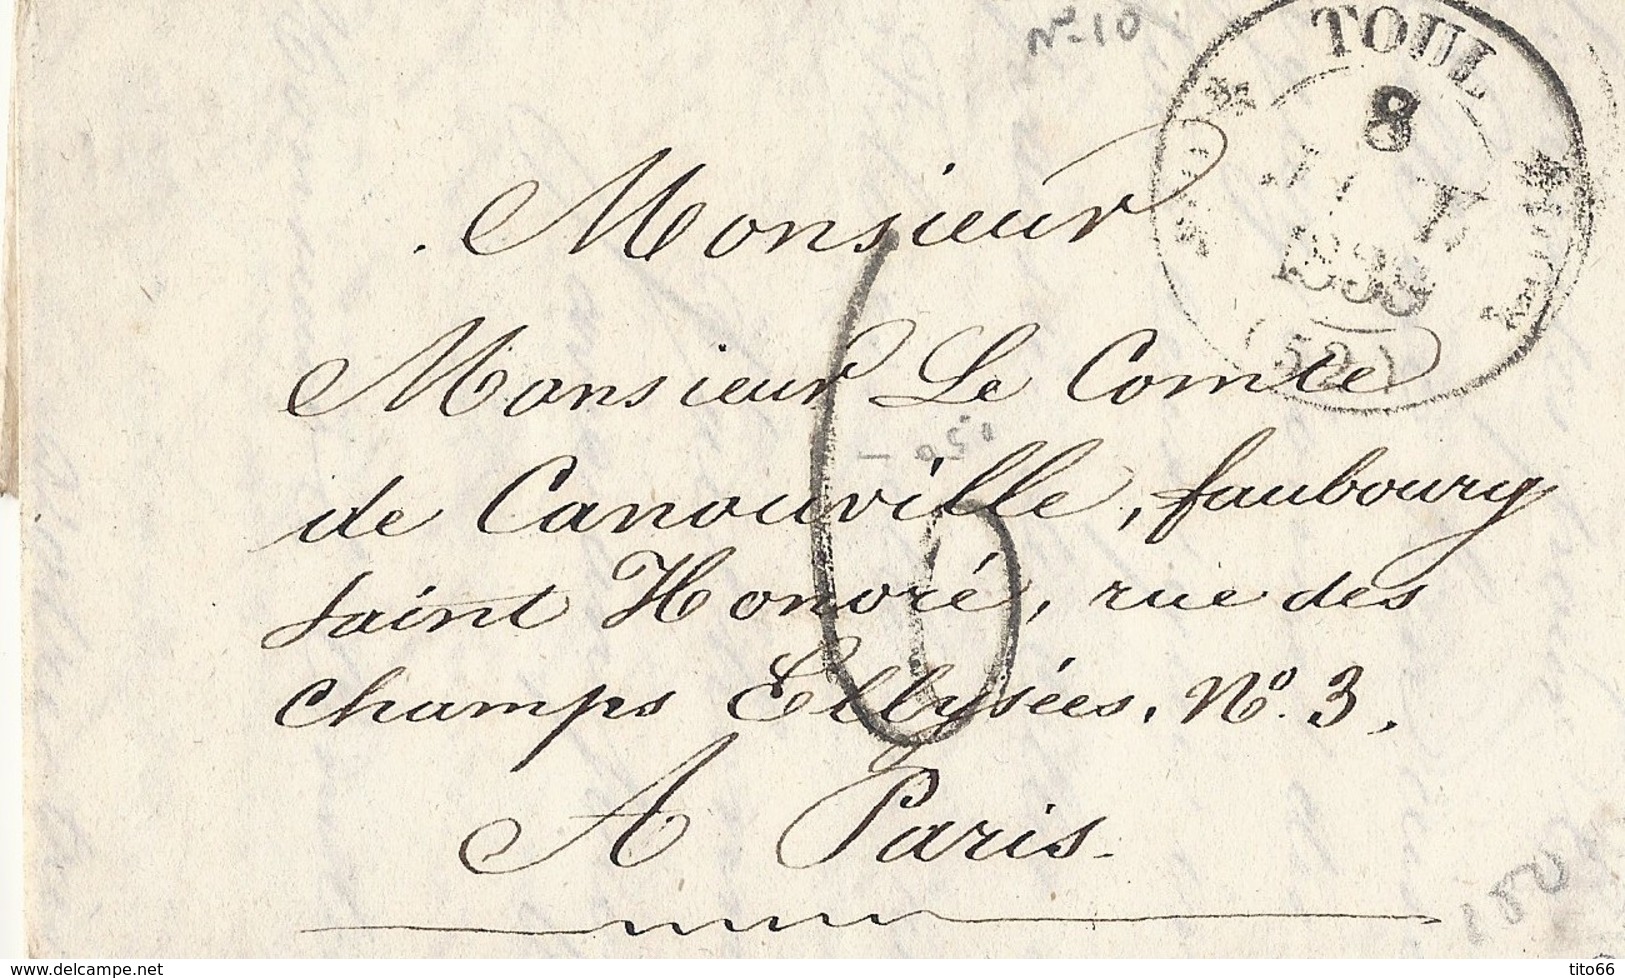 N-10
TOUL
8
JUIL
1839
(52)
Monsieur
6
Monsieur Le Comte
de Canouville, faubourg
saint Honoré, rue des
champs Ellysées, N.º 3,
A Paris.
www.delcampe.net
tito66